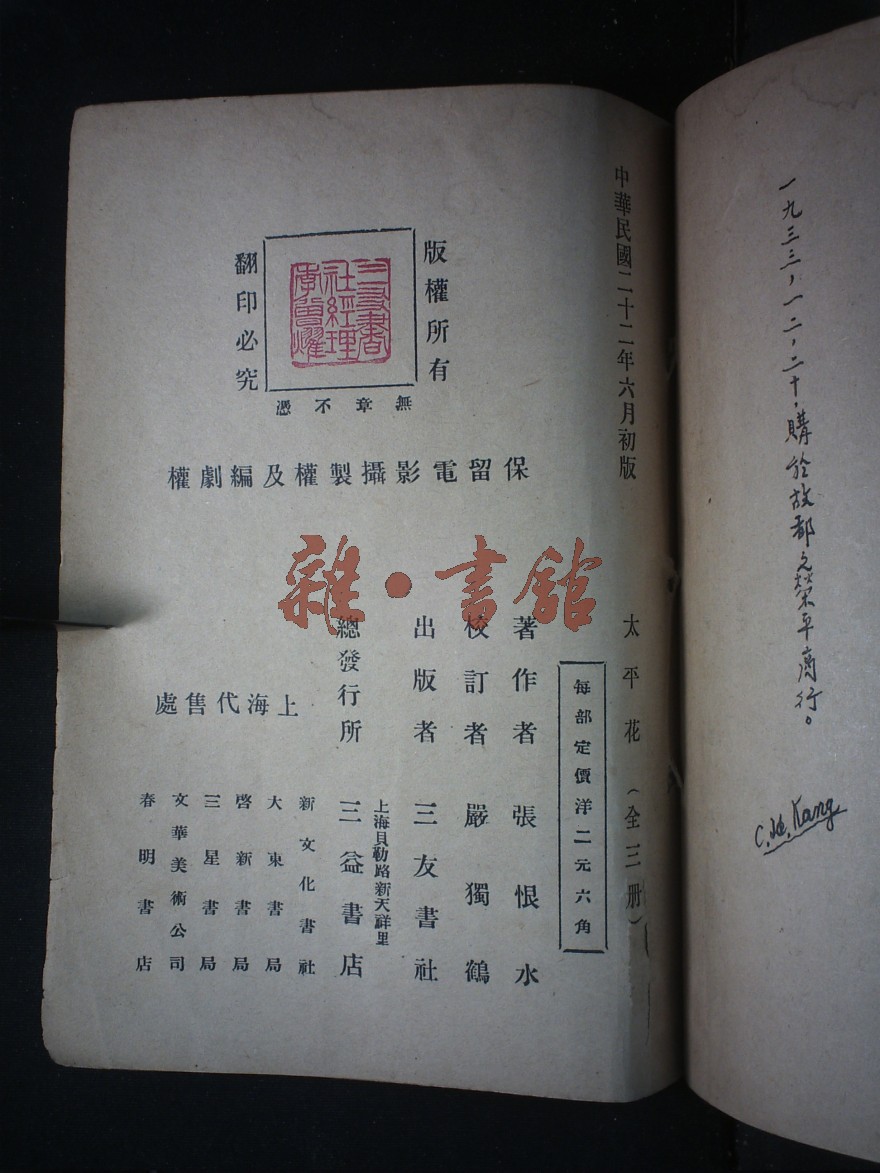 一九三三，一二，二十．購於故都之榮平商行。
Kang
中華民國二十二年六月初版
太平花（全三册）
每部定價洋二元六角
著作者 張恨水
校訂者 嚴獨鶴
出版者 三友書社
上海貝勒路新天祥里
總發行所 三益書店
上海代售處
新文化書社
大東書局
啓新書局
三星書局
文華美術公司
春明書店
版權所有
三友書
社經理
翻印必究
無章不憑
保留電影攝製權及編劇權
雜·書館